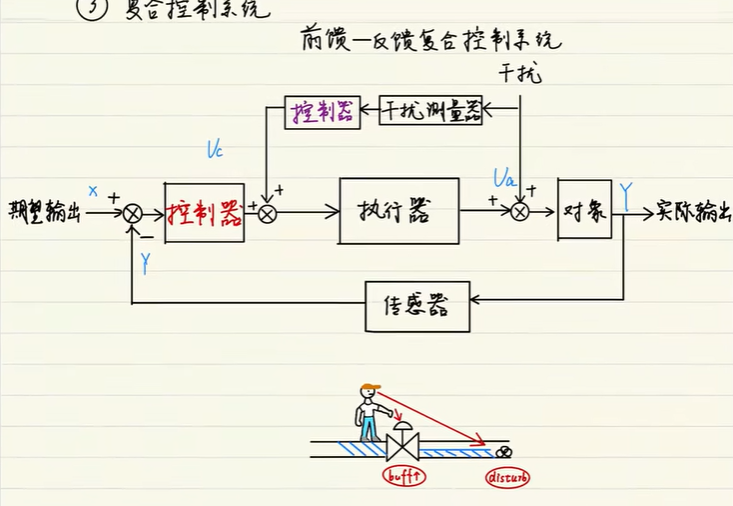 ③ 复合控制系统
前馈—反馈复合控制系统
干扰
控制器 干扰测量器
Uc
Ua
期望输出 x + 控制器 + + 执行器 + + 对象 Y 实际输出
−
Y
传感器
buff↑ disturb